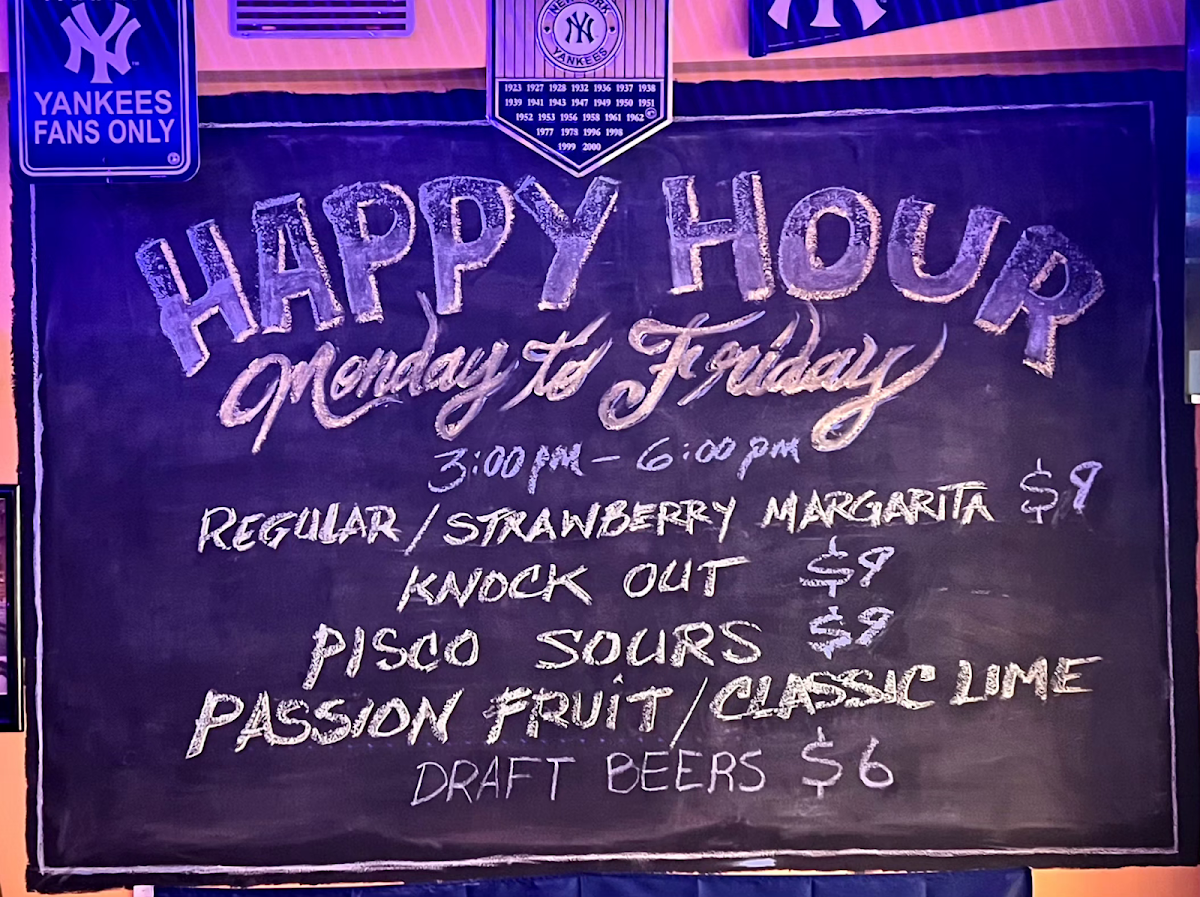 YANKEES
FANS ONLY
NEW YORK
NY
YANKEES
1923 1927 1928 1932 1936 1937 1938
1939 1941 1943 1947 1949 1950 1951
1952 1953 1956 1958 1961 1962
1977 1978 1996 1998
1999 2000
HAPPY HOUR
Monday to Friday
3:00pm - 6:00pm
REGULAR/STRAWBERRY MARGARITA $9
KNOCK OUT $9
PISCO SOURS $9
PASSION FRUiT/CLASSIC LIME
DRAFT BEERS $6